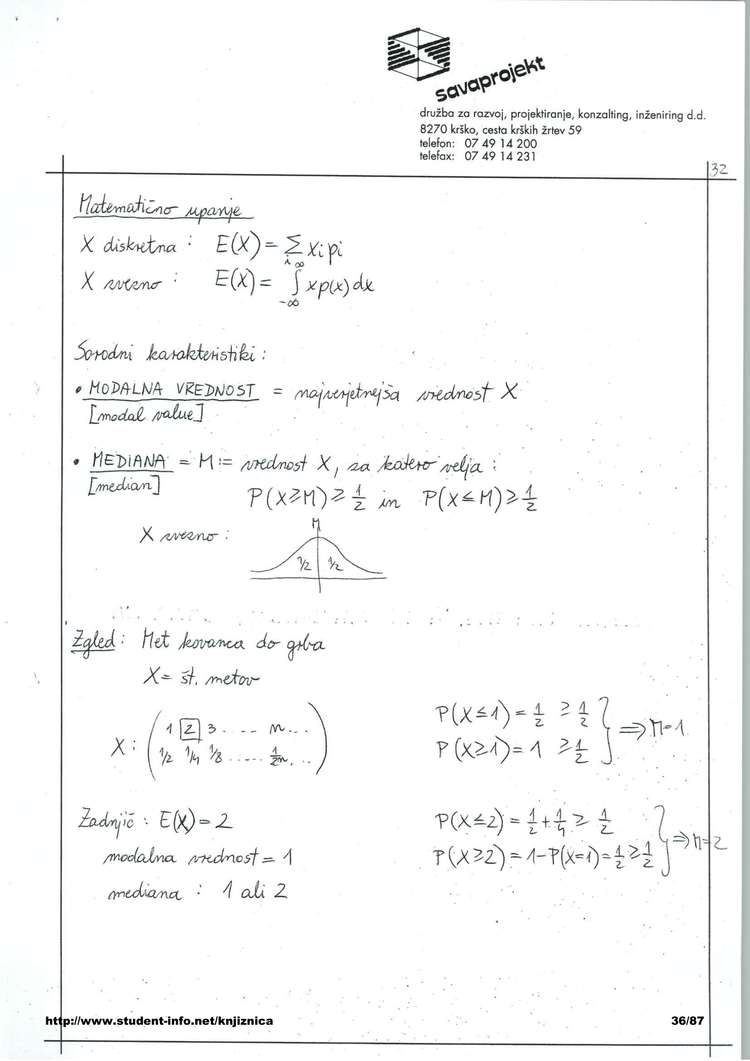 savaprojekt
družba za razvoj, projektiranje, konzalting, inženiring d.d.
8270 krško, cesta krških žrtev 59
telefon: 07 49 14 200
telefax: 07 49 14 231
32
Matematično upanje
X diskretna : E(X) = ∑_i x_i p_i
X zvezno : E(X) = ∫_{-∞}^{∞} x p(x) dx
Sorodni karakteristiki :
• MODALNA VREDNOST = najverjetnejša vrednost X
[modal value]
• MEDIANA = M := vrednost X, za katero velja :
[median]
P(X≥M) ≥ 1/2 in P(X≤M) ≥ 1/2
X zvezno :
M
1/2 1/2
Zgled : Met kovanca do grba
X = št. metov
X : ( 1 2 3 .... n ...
1/2 1/4 1/8 .... 1/2^n ... )
P(X≤1) = 1/2 ≥ 1/2
P(X≥1) = 1 ≥ 1/2 } ⇒ M=1
Zadnjič : E(X) = 2
modalna vrednost = 1
mediana : 1 ali 2
P(X≤2) = 1/2 + 1/4 ≥ 1/2
P(X≥2) = 1-P(X=1) = 1/2 ≥ 1/2 } ⇒ M=2
http://www.student-info.net/knjiznica
36/87